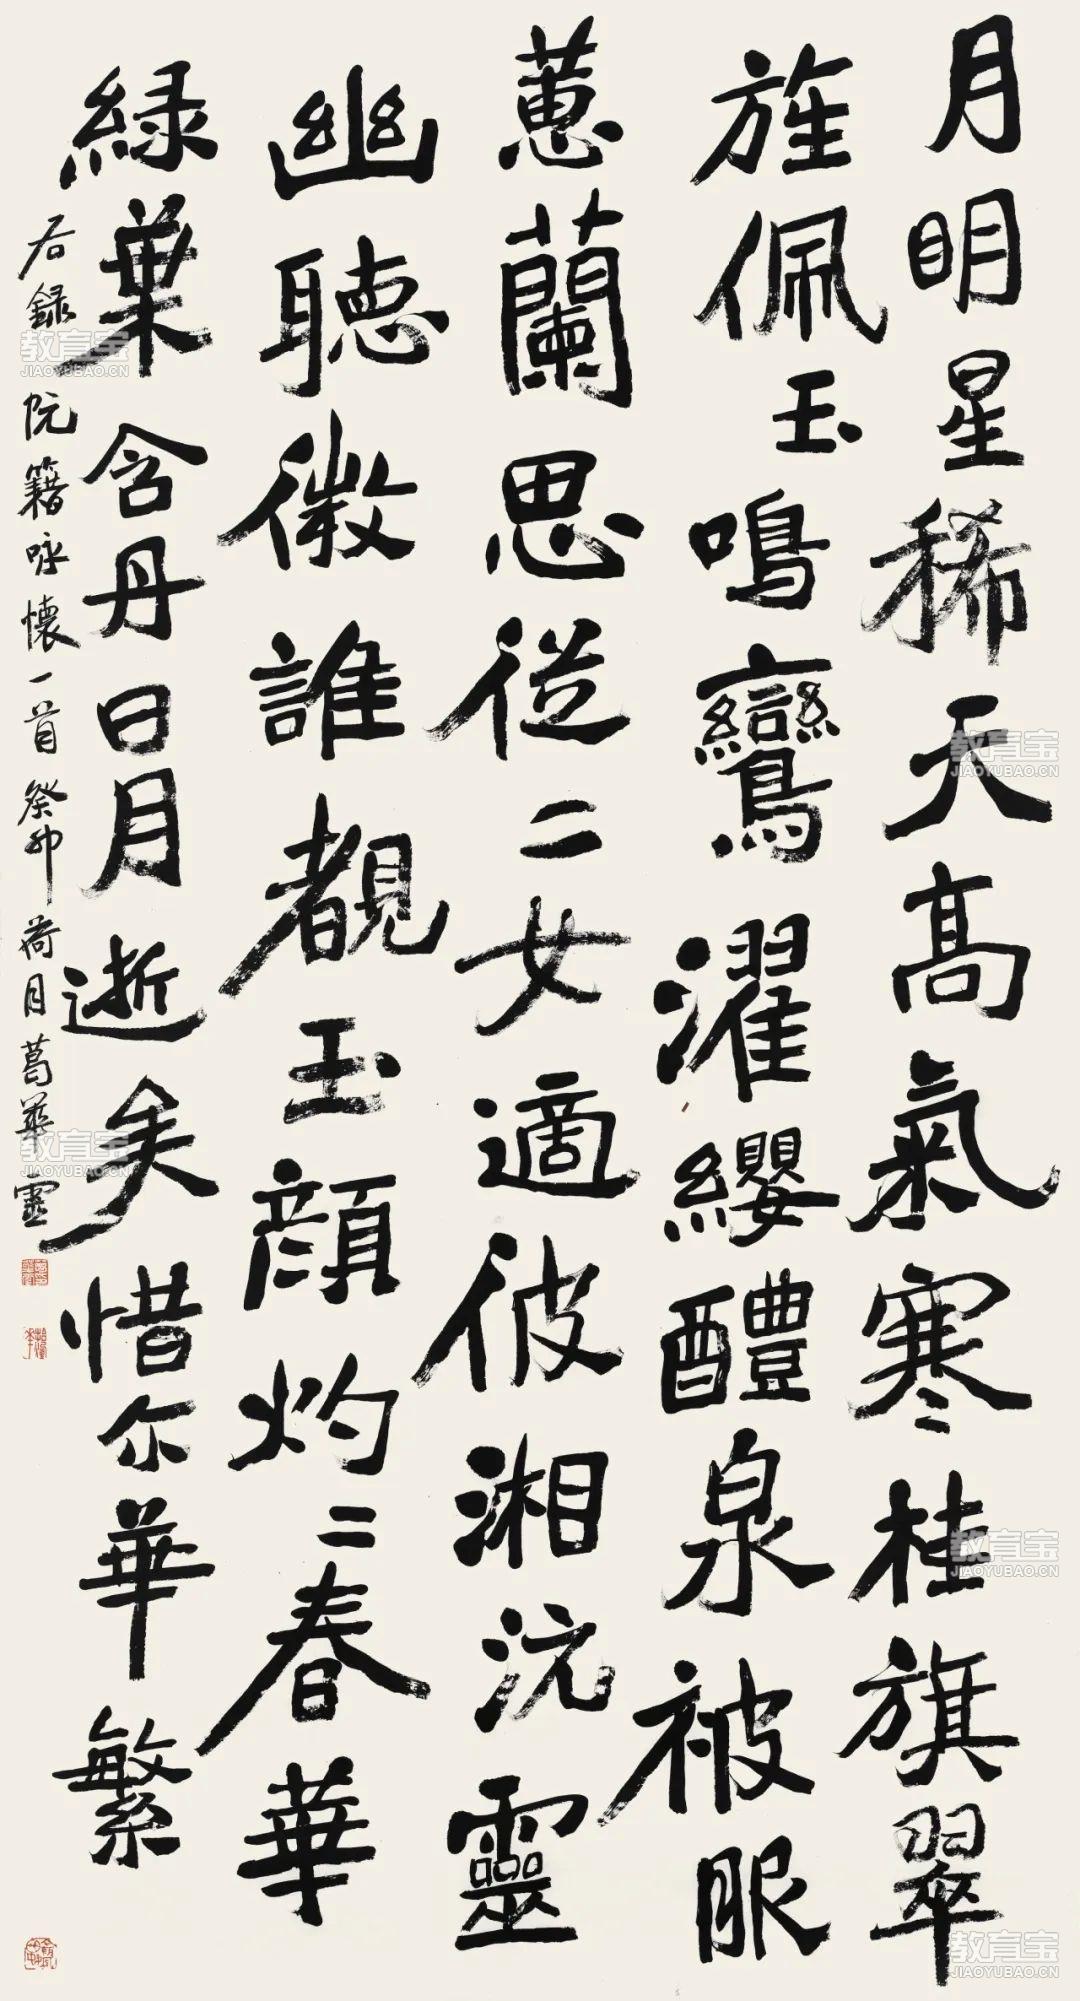 月明星稀天高氣寒桂旗翠
旌佩玉鳴鸞濯纓醴泉被服
蕙蘭思從二女適彼湘沅靈
幽聽微誰覩玉顏灼二春華
緑葉含丹日月逝矣惜尔華繁
右録阮籍咏懷一首癸卯荷月葛華靈
教育宝
JIAOYUBAO.CN
教育宝
JIAOYUBAO.CN
教育宝
JIAOYUBAO.CN
教育宝
JIAOYUBAO.CN
教育宝
JIAOYUBAO.CN